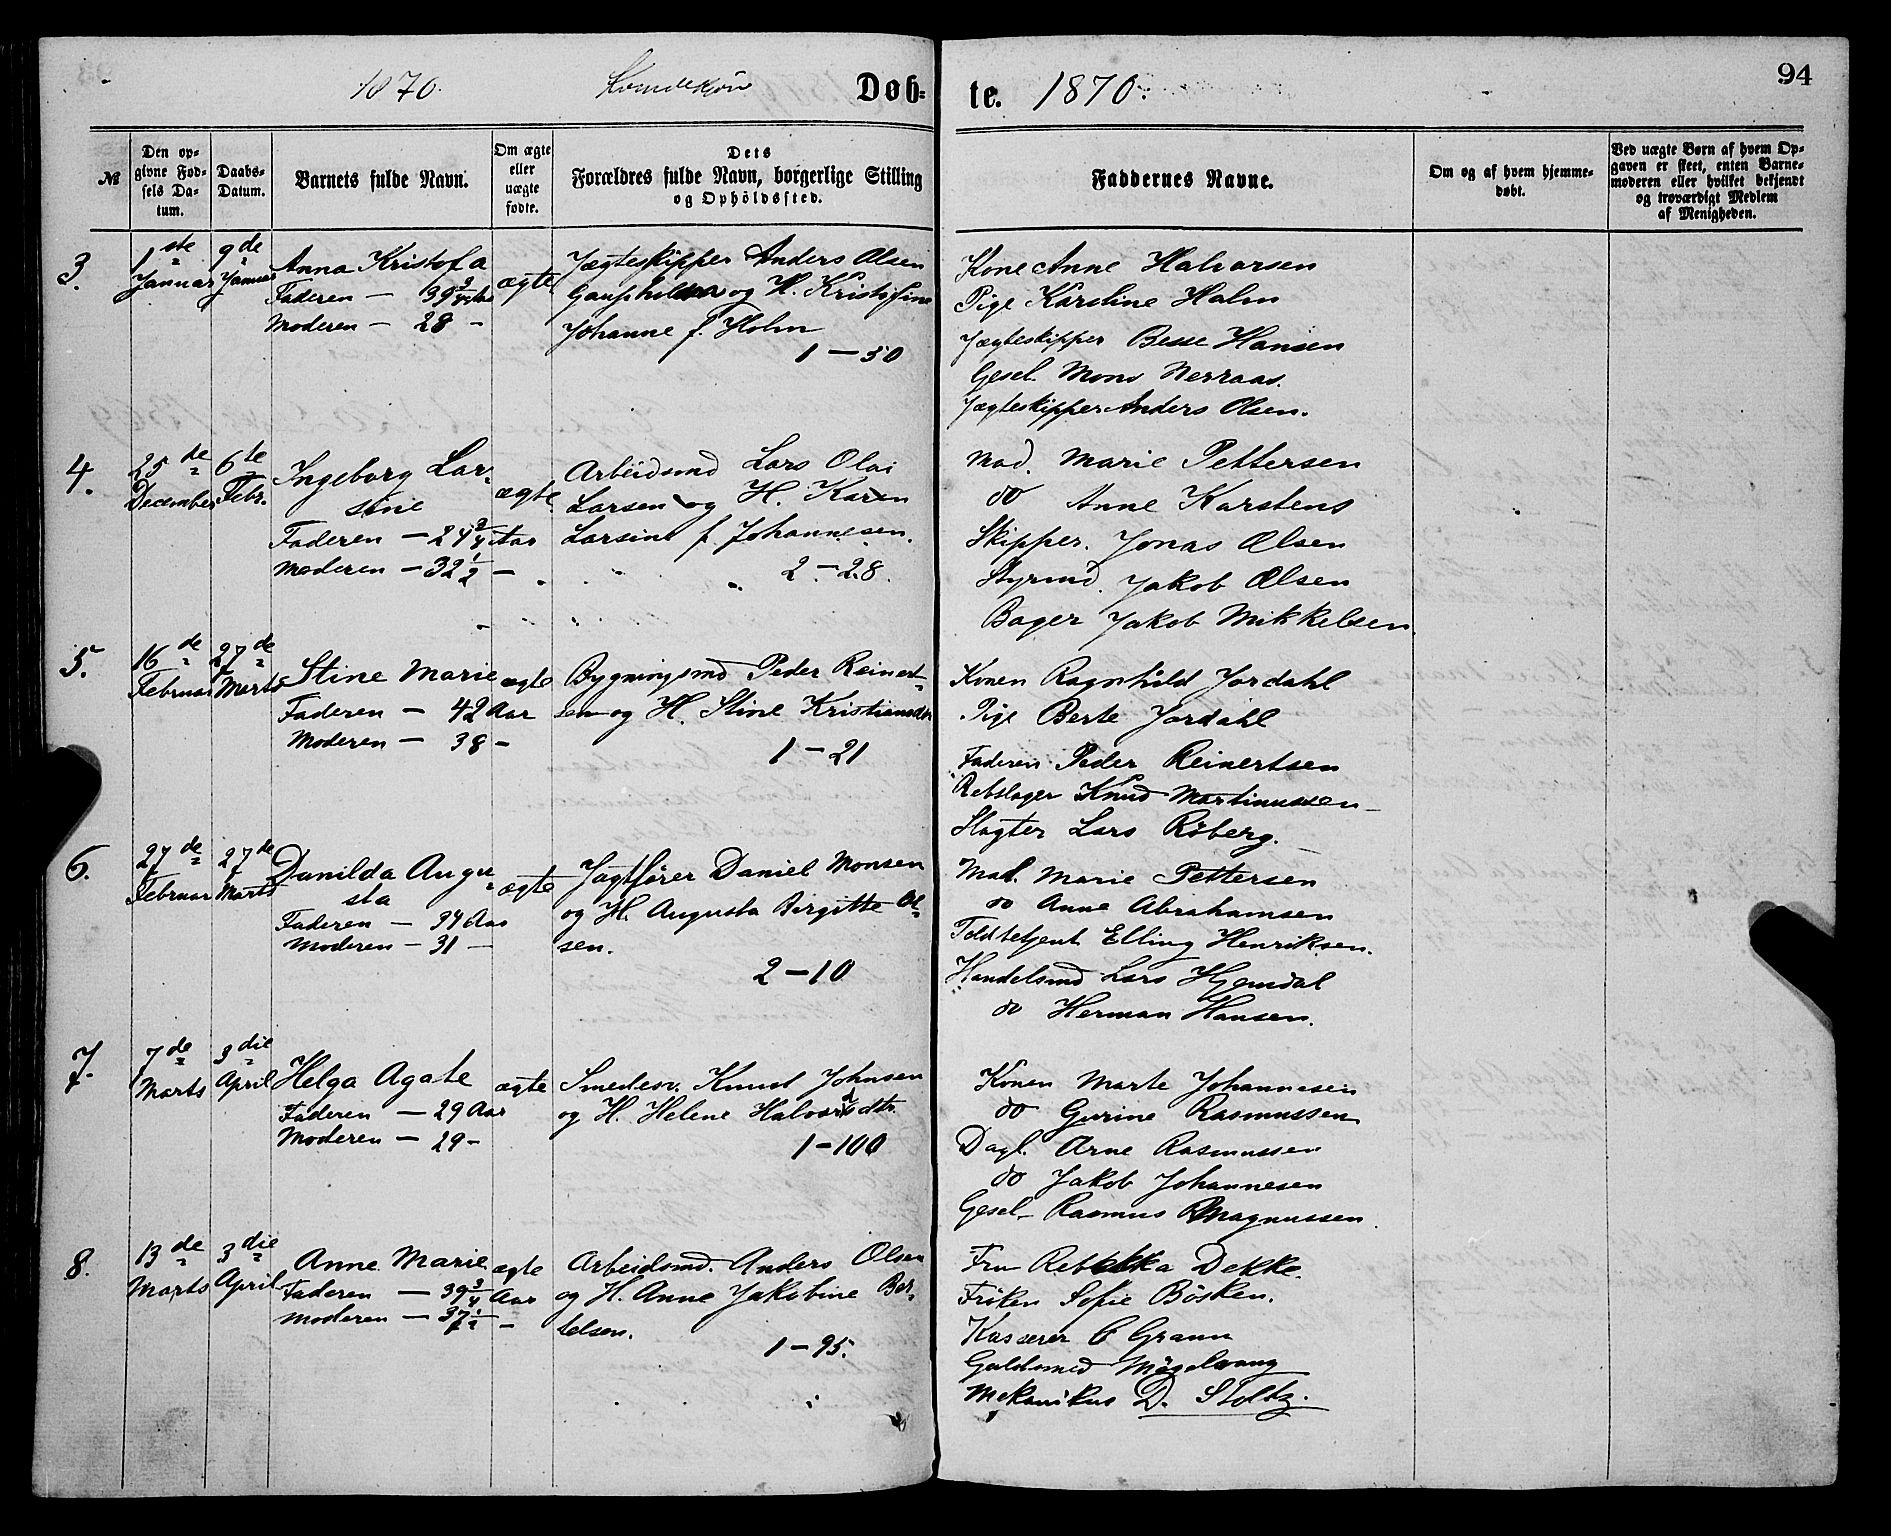 1870. Kvindekjøn Døb-
te. 1870. 94
№
Den op-
givne Fød-
sels Da-
tum.
Daabs-
Datum.
Barnets fulde Navn.
Om ægte
eller
uægte
fødte.
Dets
Forældres fulde Navn, borgerlige Stilling
og Opholdssted.
Faddernes Navne.
Om og af hvem hjemme-
døbt.
Ved uægte Børn af hvem Op-
gaven er skeet, enten Barne-
moderen eller hvilket bekjendt
og troværdigt Medlem
af Menigheden.
3.
1ste
Januar
9de
Januar
Anna Kristofa
Faderen — 39 3/4 Aar
Moderen — 28 —
ægte
Jægteskipper Anders Olsen
og H. Kristofine
Johanne f. Holm
1 — 50
Kone Anne Halvorsen
Pige Karoline Holm
Jægteskipper Besse Hansen
Gesel. Mons Nerraas.
Jægteskipper Anders Olsen.
4.
25de
December
6te
Febr.
Ingeborg Lar-
sine
Faderen — 24 3/4 Aar
Moderen — 32 1/2 —
ægte
Arbeidsmd Lars Olai
Larsen og H. Karen
Larsine f. Johannesen.
2 — 28.
Mad. Marie Pettersen
do Anne Karstens
Skipper. Jonas Olsen
Styrmd. Jakob Olsen
Bager Jakob Mikkelsen.
5.
16de
Februar
27de
Marts
Stine Marie
Faderen — 42 Aar
Moderen — 38 —
ægte
Bygningsmd Peder Reinert-
sen og H. Stine Kristiansdtr
1 — 21
Konen Ragnhild Jordahl
Pige Berte Jordahl
Faderen Peder Reinertsen
Rebslager Knud Martinussen
Slagter Lars Röberg.
6.
27de
Februar
27de
Marts
Danilda Augu-
sta
Faderen — 34 Aar
Moderen — 31 —
ægte
Jagtfører Daniel Monsen
og H. Augusta Birgitte Ol-
sen.
2 — 10
Mad. Marie Pettersen
do Anne Abrahamsen
Toldbetjent Elling Henriksen.
Handelsmd Lars Hjemdal
do Herman Hansen.
7.
7de
Marts
3die
April
Helga Agate
Faderen — 29 Aar
Moderen — 29 —
ægte
Smedesv. Knud Johnsen
og H. Helene Halvorsdtr.
1 — 100
Konen Marte Johannesen
do Gurine Rasmussen
Dagl. Arne Rasmussen
do Jakob Johannesen
Gesel. Rasmus Magnussen.
8.
13de
Marts
3die
April
Anne Marie
Faderen — 39 3/4 Aar
Moderen — 37 1/2 —
ægte
Arbeidsmd. Anders Olsen
og H. Anne Jakobine Ber-
telsen.
1 — 95.
Fru Rebekka Dekke.
Frøken Sofie Böšken.
Kasserer C Gran
Guldsmed Møgelvang
Mekanikus D. Stoltz.